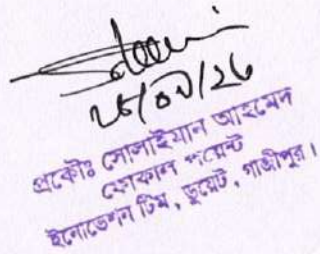 প্রকৌঃ সোলাইমান আহমেদ
ফোকাল পয়েন্ট
ইনোভেশন টিম, ডুয়েট, গাজীপুর।